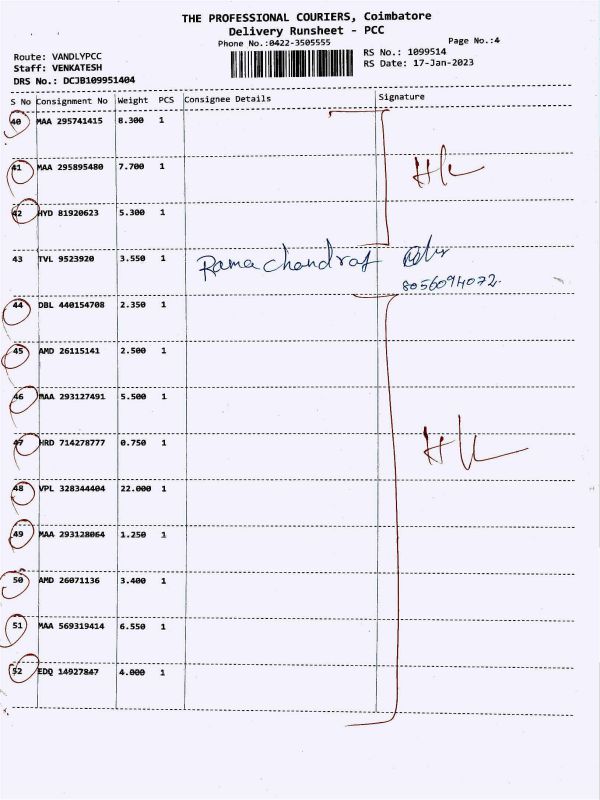 THE PROFESSIONAL COURIERS, Coimbatore
Delivery Runsheet - PCC
Phone No.:0422-3505555
Page No.:4
Route: VANDLYPCC
RS No.: 1099514
Staff: VENKATESH
RS Date: 17-Jan-2023
DRS No.: DCJB109951404
S No Consignment No Weight PCS Consignee Details Signature
40 MAA 295741415 8.300 1
41 MAA 295895480 7.700 1
42 HYD 81920623 5.300 1
43 TVL 9523920 3.550 1 Rama Chandraf
8056094072.
44 DBL 440154708 2.350 1
45 AMD 26115141 2.500 1
46 MAA 293127491 5.500 1
47 HRD 714278777 0.750 1
48 VPL 328344404 22.000 1
49 MAA 293128064 1.250 1
50 AMD 26071136 3.400 1
51 MAA 569319414 6.550 1
52 EDQ 14927847 4.000 1